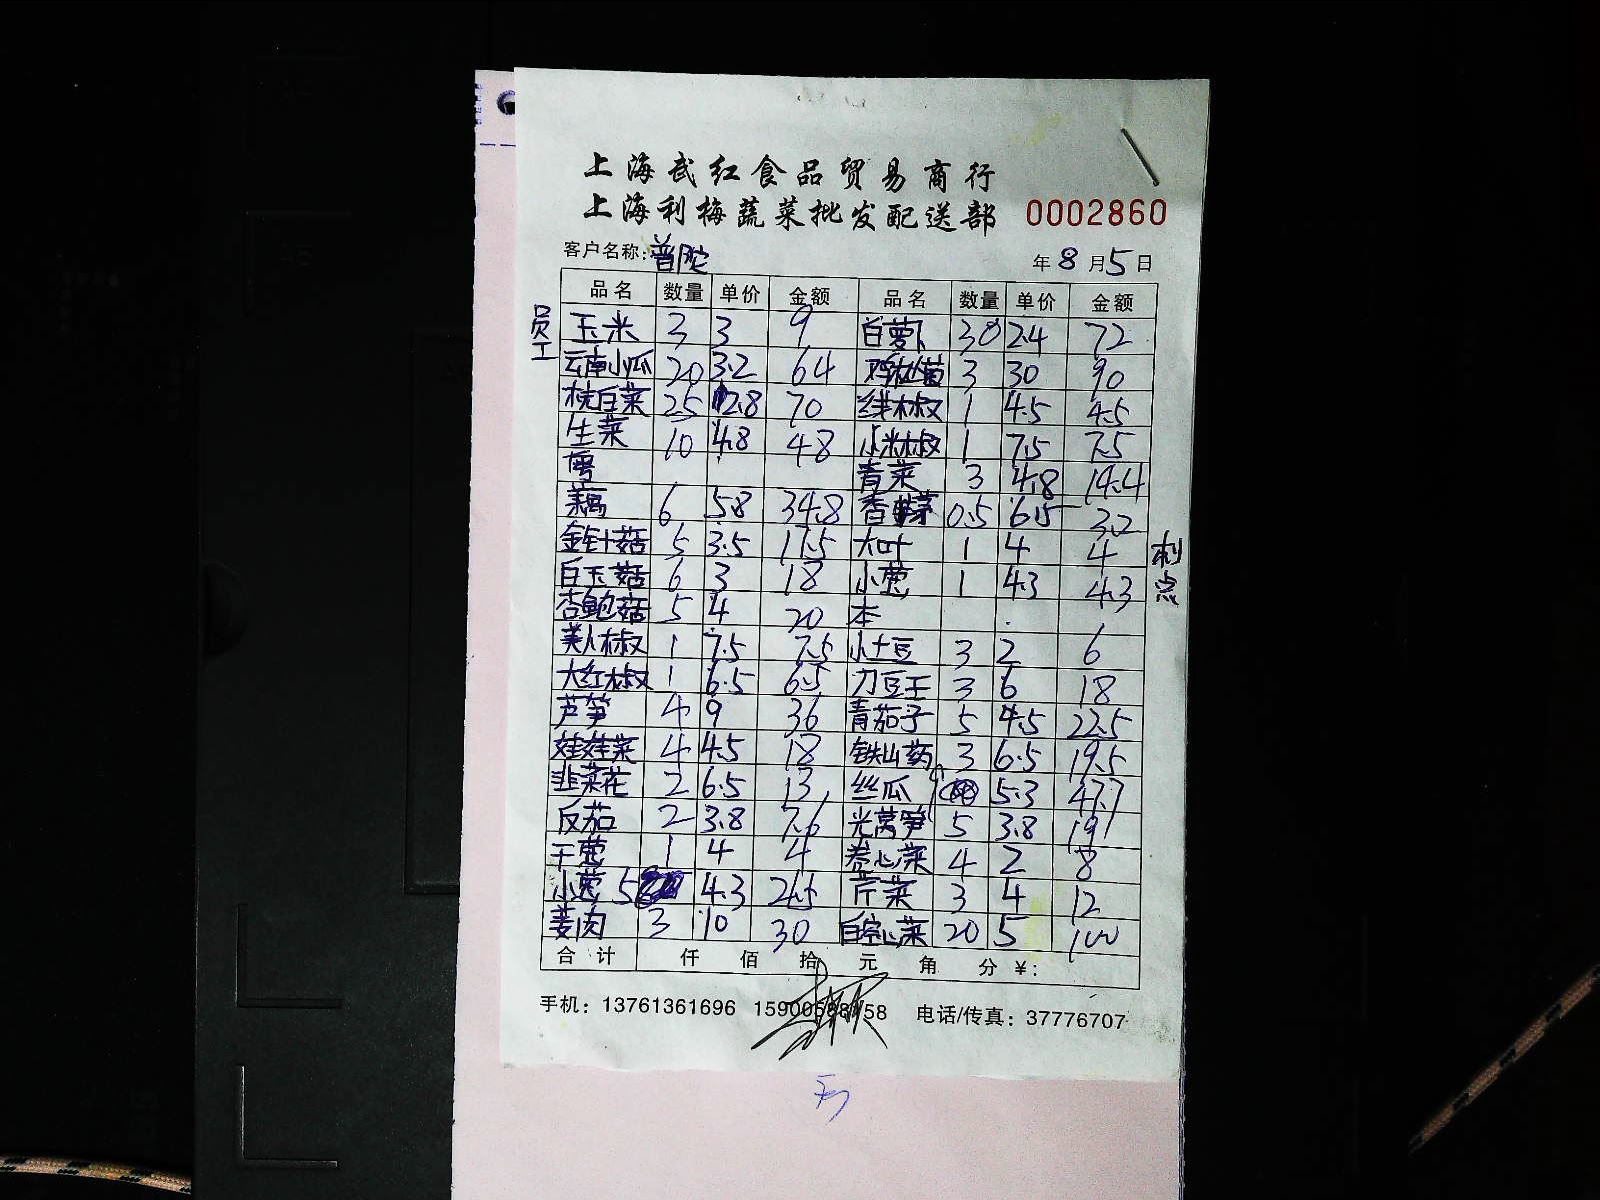 上海武红食品贸易商行
上海利梅蔬菜批发配送部 0002860
客户名称:普陀 年8月5日
品名 数量 单价 金额 品名 数量 单价 金额
员工
玉米 3 3 9 白萝卜 30 2.4 72
云南小瓜 20 3.2 64 鸡枞菌 3 30 90
杭白菜 25 2.8 70 线椒 1 4.5 4.5
生菜 10 4.8 48 小米椒 1 7.5 7.5
粤 青菜 3 4.8 14.4
藕 6 5.8 34.8 香茅 0.5 6.5 3.2
金针菇 5 3.5 17.5 大叶 1 4 4
白玉菇 6 3 18 小葱 1 4.3 4.3
杏鲍菇 5 4 20 本
美人椒 1 7.5 7.5 小土豆 3 2 6
大红椒 1 6.5 6.5 刀豆王 3 6 18
芦笋 4 9 36 青茄子 5 4.5 22.5
娃娃菜 4 4.5 18 铁山药 3 6.5 19.5
韭菜花 2 6.5 13 丝瓜 9 5.3 47.7
反茄 2 3.8 7.6 光莴笋 5 3.8 19
干葱 1 4 4 卷心菜 4 2 8
小葱 5 4.3 21.5 芹菜 3 4 12
姜肉 3 10 30 白空心菜 20 5 100
合计 仟 佰 拾 元 角 分 ¥:
手机:13761361696 电话/传真:37776707